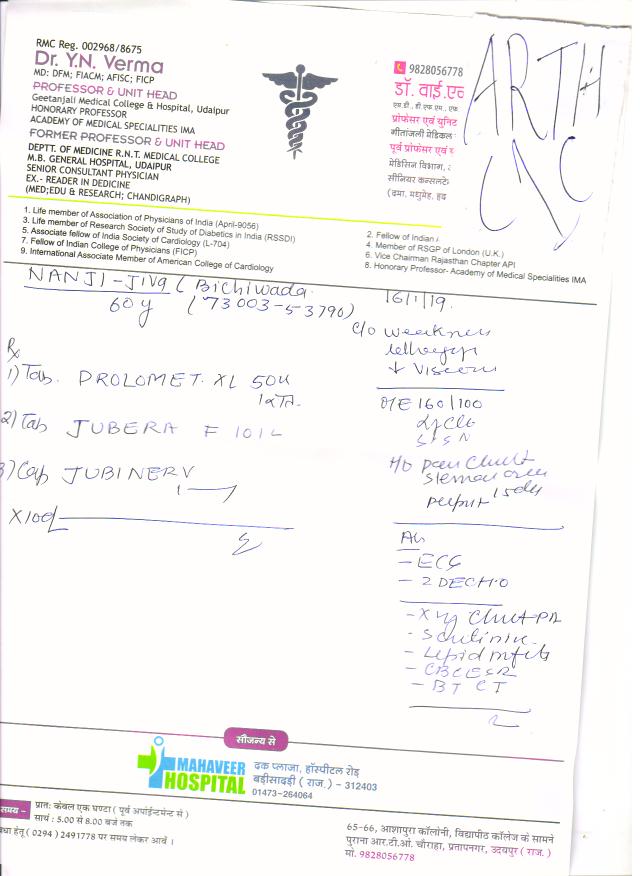 RMC Reg. 002968/8675
Dr. Y.N. Verma
MD: DFM; FIACM; AFISC; FICP
PROFESSOR & UNIT HEAD
Geetanjali Medical College & Hospital, Udaipur
HONORARY PROFESSOR
ACADEMY OF MEDICAL SPECIALITIES IMA
FORMER PROFESSOR & UNIT HEAD
DEPTT. OF MEDICINE R.N.T. MEDICAL COLLEGE
M.B. GENERAL HOSPITAL, UDAIPUR
SENIOR CONSULTANT PHYSICIAN
EX.- READER IN DEDICINE
(MED;EDU & RESEARCH; CHANDIGRAPH)
9828056778
डॉ. वाई.एन
एम.डी. डी.एफ.एम. एफ
प्रोफेसर एवं युनिट
गीतांजली मेडिकल
पूर्व प्रोफेसर एवं
मेडिसिन विभाग,
सीनियर कन्सलटे
(दमा, मधुमेह, हृद
ARTH
1. Life member of Association of Physicians of India (April-9056)
3. Life member of Research Society of Study of Diabetics in India (RSSDI)
5. Associate fellow of India Society of Cardiology (L-704)
7. Fellow of Indian College of Physicians (FICP)
9. International Associate Member of American College of Cardiology
2. Fellow of Indian
4. Member of RSGP of London (U.K.)
6. Vice Chairman Rajasthan Chapter API
8. Honorary Professor- Academy of Medical Specialities IMA
NANJI-Jiva (Bichiwada
60 y (73003-53790)
16/1/19.
Rx
1) Tab. PROLOMET. XL 50
2) Tab JUBERA F
3) Cap JUBINERV
X10d
c/o weakness
lethargy
↓ Vision
O/E 160/100
H/o pain chest
Adv
- ECG
- 2 DECHO
- X ray Chest PA
- S creatinine
- Lipid profile
- CBC ESR
- BT CT
सौजन्य से
MAHAVEER
HOSPITAL
दक प्लाजा, हॉस्पीटल रोड़
बड़ीसादड़ी ( राज.) - 312403
01473-264064
समय - प्रातः केवल एक घण्टा ( पूर्व अपॉईन्टमेन्ट से )
सायं : 5.00 से 8.00 बजे तक
हेतू ( 0294 ) 2491778 पर समय लेकर आवें ।
65-66, आशापुरा कॉलोनी, विद्यापीठ कॉलेज के सामने
पुराना आर.टी.ओ. चौराहा, प्रतापनगर, उदयपुर ( राज.)
मो. 9828056778